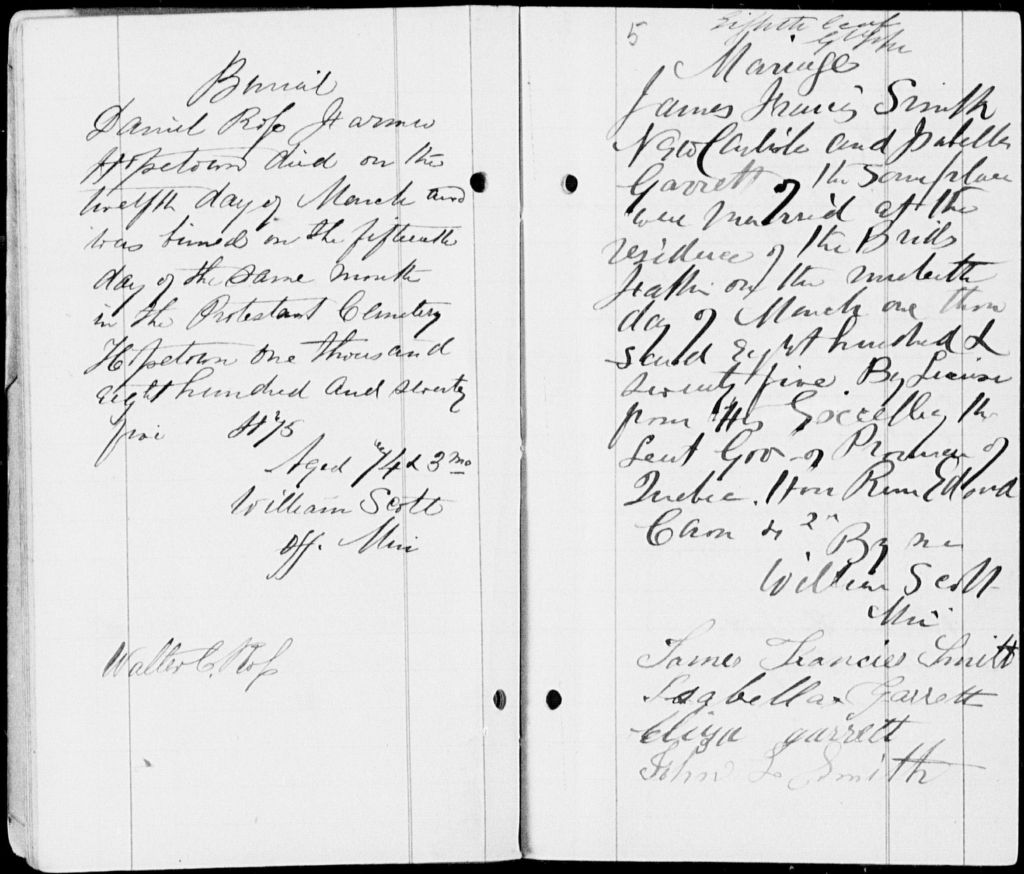 Burial
Daniel Ross Farmer
Hopetown died on the
twelfth day of March and
was buried on the fifteenth
day of the same month
in the Protestant Cemetery
Hopetown one thousand
eight hundred and seventy
five
Aged 74 & 3 mo
William Scott
Off. Min
Walter C. Ross
5
Fiffth leaf
Mariage
James Francis Smith
New Carlisle and Isabella
Garrett of the same place
were married at the
residence of the Brids
Father on the
day of March one thou
sand eight hundred &
seventy five. By License
from His Excellency the
Leut Gov of Province of
Quebec. Hon Rene Edward
Caron & By me
William Scott
Min
James Francies Smith
Isabella Garrett
Eliza garrett
John L Smith